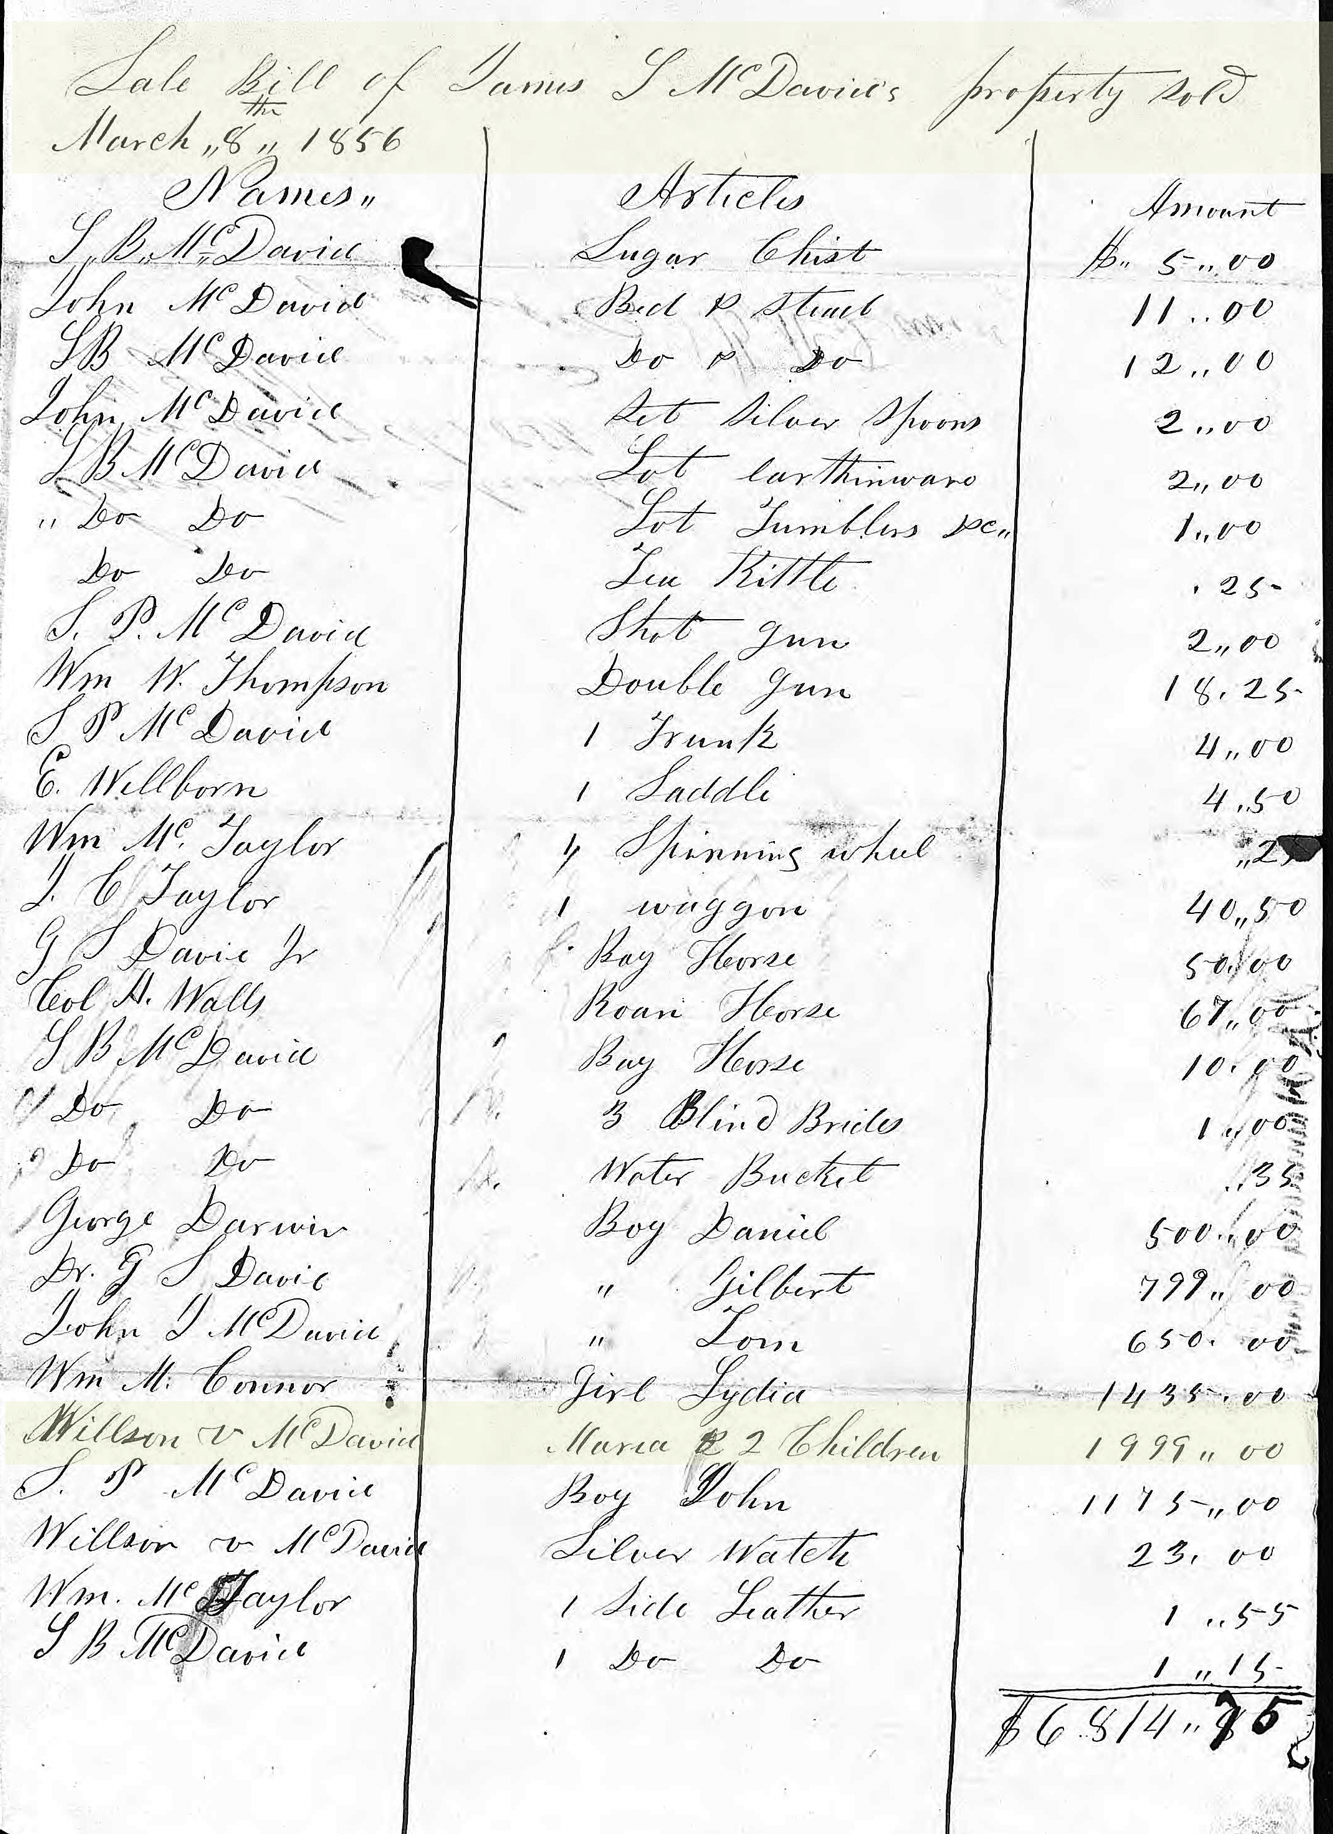 Sale Bill of James S McDavid's property sold
March „8th„ 1856
Names„ Articles Amount
S„ B„ McDavid Sugar Chist $„ 5„00
John McDavid Bed & Stead 11„00
S B McDavid Do & Do 12„00
John McDavid Set Silver Spoons 2„00
S B McDavid Lot Earthinware 2„00
„ Do Do Lot Tumblers &c„ 1„00
Do Do Tea Kittle .25
S. P. McDavid Shot gun 2„00
Wm W. Thompson Double gun 18.25
S P McDavid 1 Trunk 4„00
E. Wellborn 1 Saddle 4.50
Wm Mc. Taylor Spinning wheel „25
J. C Taylor 1 waggon 40„50
G S Davie Jr Bay Horse 50„00
Col H. Walls Roan Horse 67„00
S B McDavid Bay Horse 10.00
Do Do 3 Blind Bridles 1„00
Do Do Water Bucket „35
George Darwin Boy Daniel 500„00
Dr. G S Davie „ Gilbert 799„00
John J McDavid „ Tom 650.00
Wm M. Connor Girl Lydia 1435.00
Willson v McDavid Maria & 2 Children 1999„00
S. P McDavid Boy John 1175„00
Willson v McDavid Silver Watch 23.00
Wm. Mc Taylor 1 Side Leather 1„55
S B McDavid 1 Do Do 1„15
$6814„75